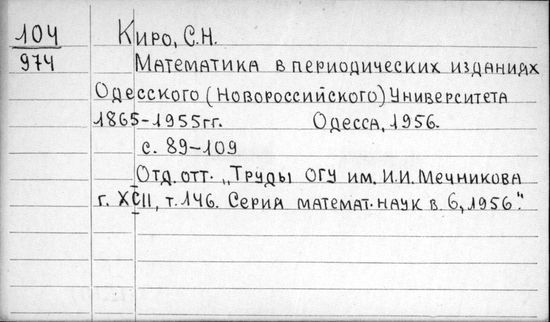 104 Киро, С.Н.
974 Математика в периодических изданиях
Одесского (Новороссийского) Университета
1865-1955гг. Одесса, 1956.
с. 89-109
Отд. отт. „Труды ОГУ им. И.И. Мечникова
г. XCII, т. 146. Серия математ. наук в. 6, 1956."